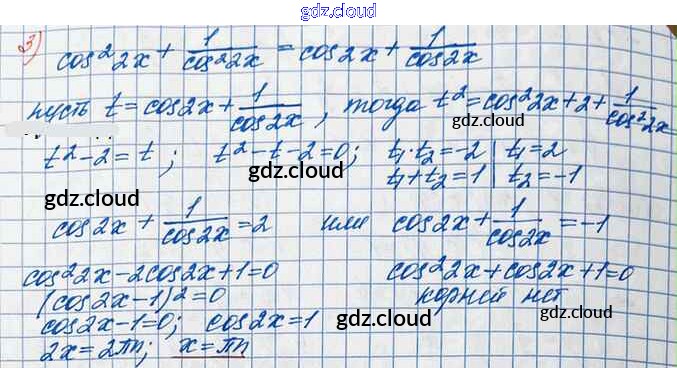 gdz.cloud
3) cos²2x + 1/cos²2x = cos2x + 1/cos2x
пусть t = cos2x + 1/cos2x, тогда t² = cos²2x + 2 + 1/cos²2x
gdz.cloud
t² - 2 = t; t² - t - 2 = 0; t₁·t₂ = -2 | t₁ = 2
t₁ + t₂ = 1 | t₂ = -1
gdz.cloud gdz.cloud gdz.cloud
cos2x + 1/cos2x = 2 или cos2x + 1/cos2x = -1
cos²2x - 2cos2x + 1 = 0 cos²2x + cos2x + 1 = 0
(cos2x - 1)² = 0 корней нет
cos2x - 1 = 0; cos2x = 1
gdz.cloud gdz.cloud
2x = 2πn; x = πn
gdz.cloud